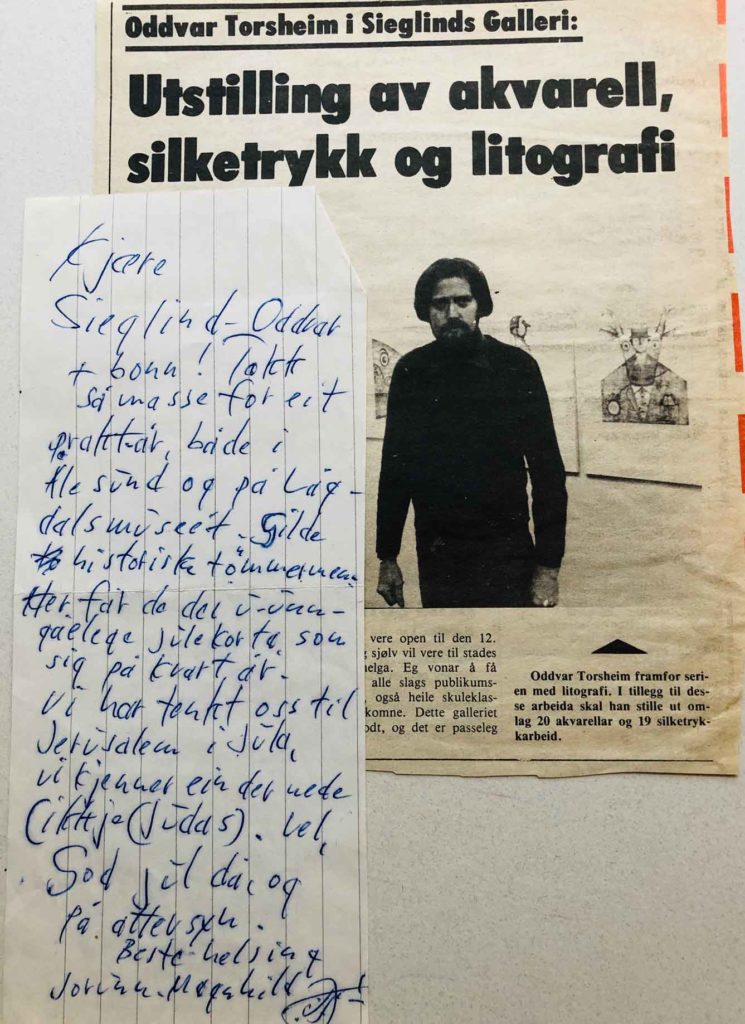 Oddvar Torsheim i Sieglinds Galleri:
Utstilling av akvarell,
silketrykk og litografi
Kjære
Sieglind-Oddvar
+ bonn! Takk
så masse for eit
prakt-år, både i
Ålesund og på Låg-
dalsmuseet. Gilde
historiske tömmermenn.
Her får de det u-unn-
gåelege julekorta, som
sig på kvart år.
Vi har tenkt oss til
Jerusalem i jula,
vi kjenner ein der nede
(ikkje (Judas). Vel,
God jul då, og
på attersyn.
Beste helsing
Jorunn. Magnhild
vere open til den 12.
sjølv vil vere til stades
elga. Eg vonar å få
alle slags publikums-
, også heile skuleklas-
komne. Dette galleriet
odt, og det er passeleg
Oddvar Torsheim framfor seri-
en med litografi. I tillegg til des-
se arbeida skal han stille ut om-
lag 20 akvarellar og 19 silketryk-
karbeid.